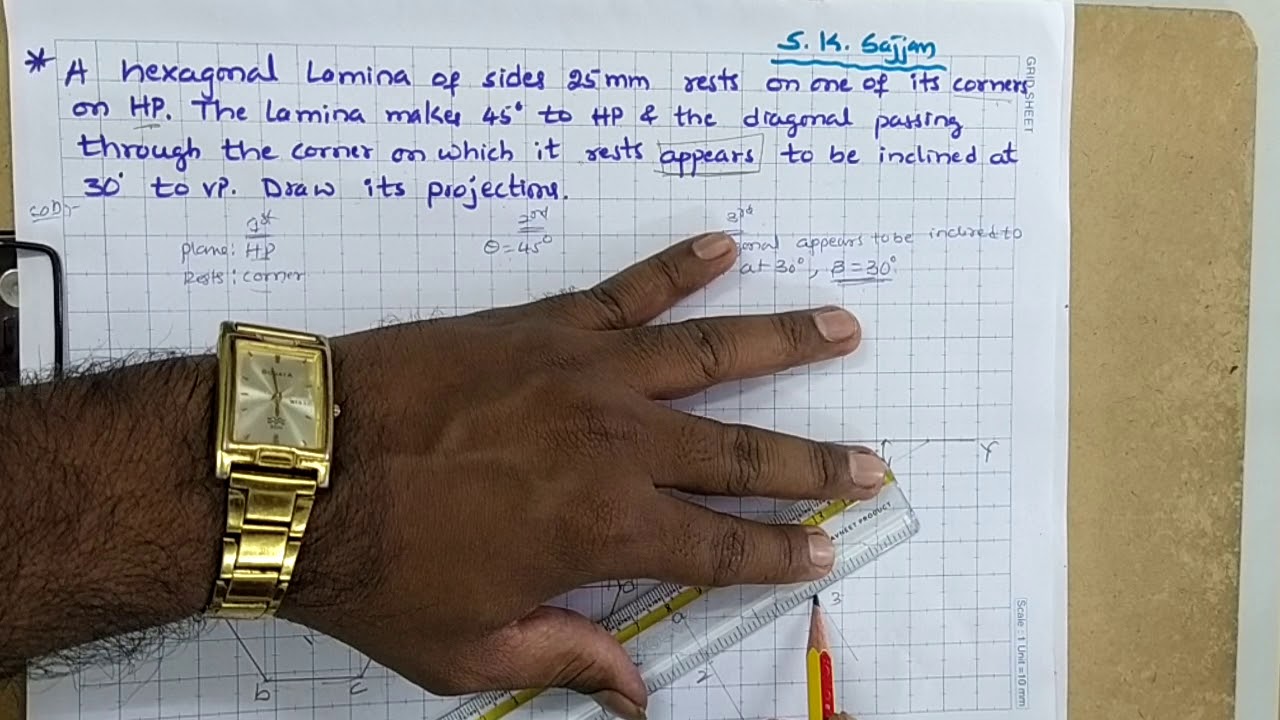 S. K. Sajjan
* A hexagonal Lamina of sides 25mm rests on one of its corners
on HP. The Lamina makes 45° to HP & the diagonal passing
through the corner on which it rests appears to be inclined at
30° to VP. Draw its projections.
SOD:-
1st
2nd
3rd
plane: HP
θ = 45°
onal appears to be inclined to
Rests: corner
at 30°, β = 30°
SONATA
Y
NAVNEET PRODUCT
3
a
2
b
c
GRID SHEET
Scale : 1 Unit = 10 mm